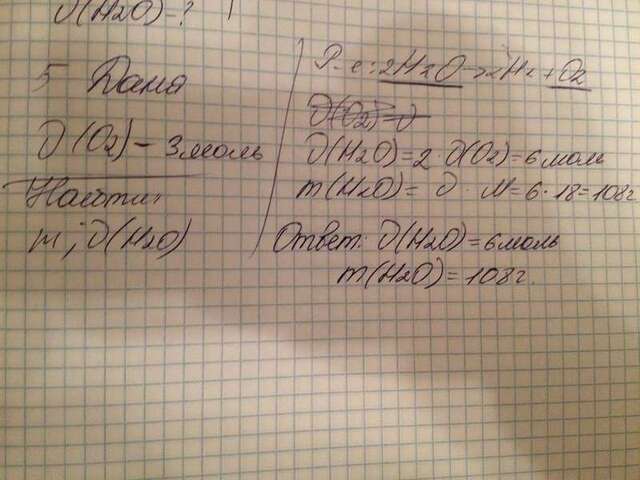 ν(H2O) = ?
5 Дано
ν(O2) – 3 моль
Найти:
m, ν(H2O)
Р-е: 2H2O → 2H2 + O2
ν(H2O) = 2 · ν(O2) = 6 моль
m(H2O) = ν · M = 6 · 18 = 108 г.
Ответ: ν(H2O) = 6 моль
m(H2O) = 108 г.